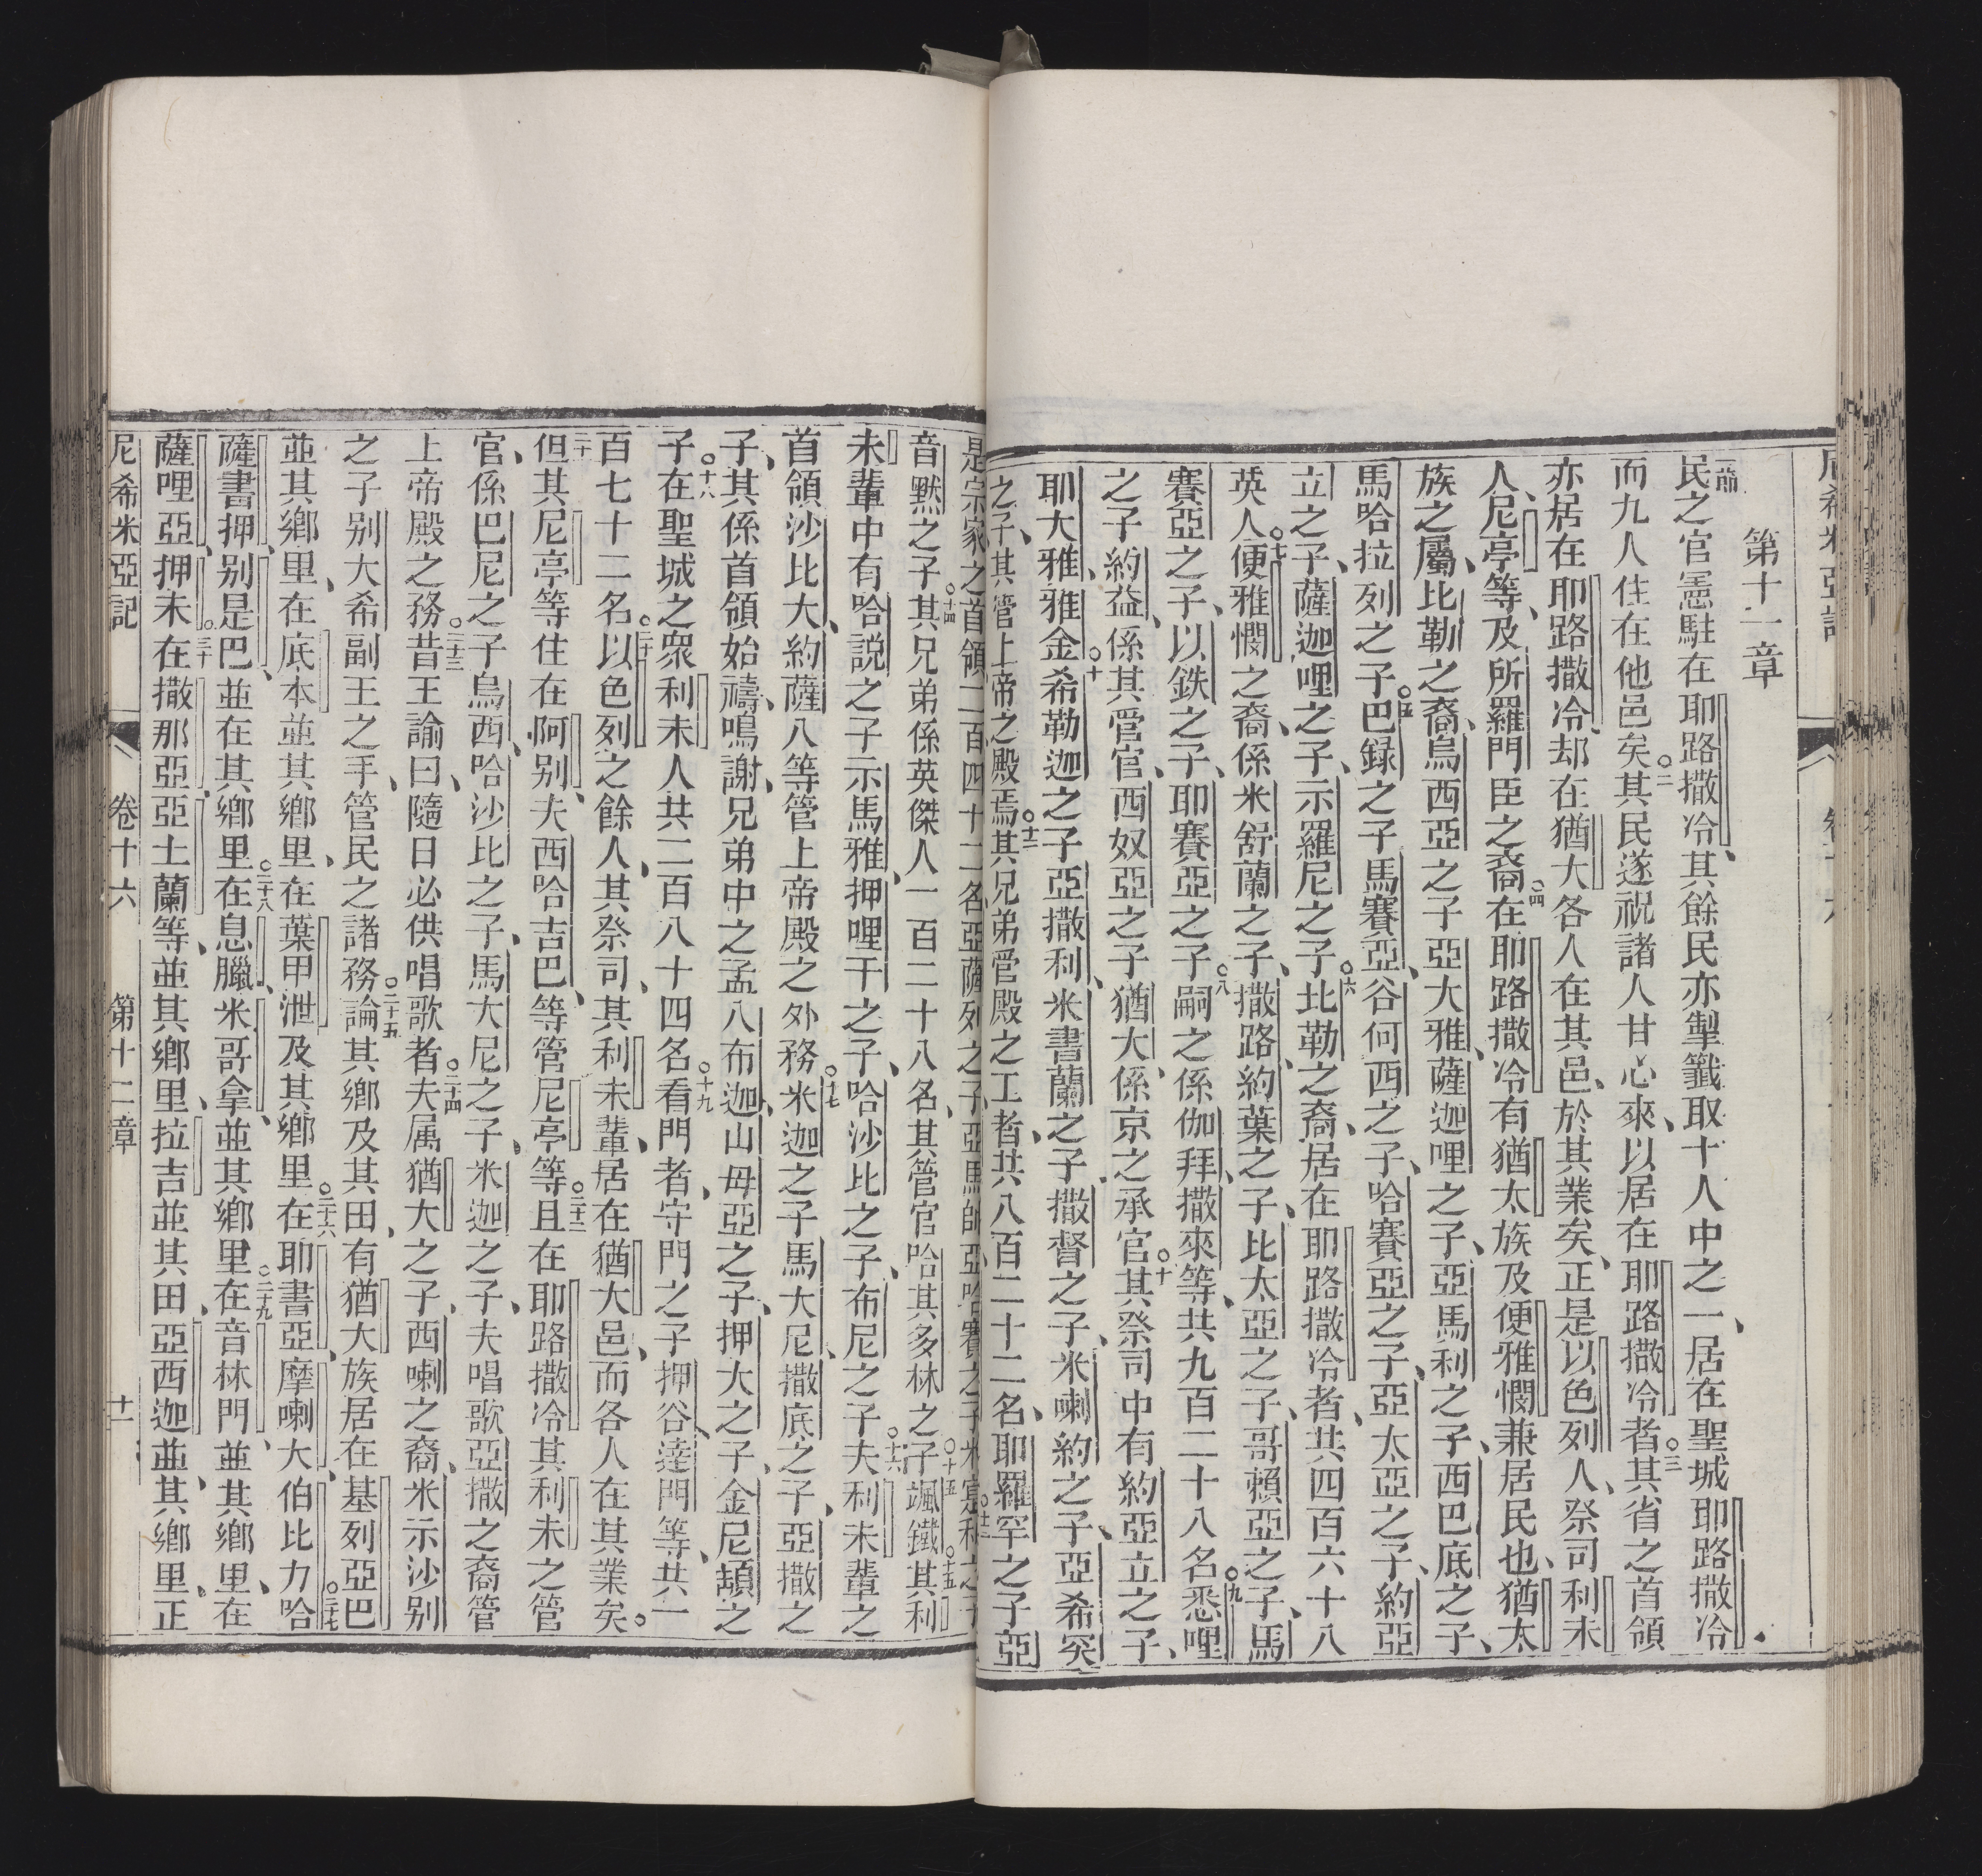 尼希米亞記
第十一章
民之官憲駐在耶路撒冷、其餘民亦掣籤取十人中之一、居在聖城耶路撒冷
而九人住在他邑矣○二其民遂祝諸人甘心來、以居在耶路撒冷者○三其省之首領
亦居在耶路撒冷却在猶大各人在其邑、於其業矣、正是以色列人、祭司利未
人、尼亭等、及所羅門臣之裔○四在耶路撒冷有猶太族及便雅憫兼居民也、猶太
族之屬、比勒之裔、烏西亞之子亞大雅、薩迦哩之子、亞馬利之子、西巴底之子、
馬哈拉列之子○五巴録之子馬賽亞、谷何西之子、哈賽亞之子、亞太亞之子、約亞
立之子、薩迦哩之子、示羅尼之子○六比勒之裔、居在耶路撒冷者、共四百六十八
英人○七便雅憫之裔、係米舒蘭之子、撒路、約葉之子、比太亞之子、哥賴亞之子、馬
賽亞之子、以鉄之子、耶賽亞之子○八嗣之係伽拜、撒來等、共九百二十八名○九悉哩
之子約益、係其管官、西奴亞之子猶大、係京之承官○十其祭司中有約亞立之子、
耶大雅、雅金○十希勒迦之子亞撒利、米書蘭之子撒督之子、米喇約之子、亞希突
之子、其管上帝之殿焉○十二其兄弟管殿之工者、共八百二十二名、耶羅罕之子亞
是宗家之首領、二百四十二名、亞薩列之子、亞馬帥、亞哈賽之子
音默之子○十四其兄弟係英傑人一百二十八名、其管官哈其多林之子○十五颯鐵其利
未輩中有哈説之子示馬雅、押哩干之子、哈沙比之子、布尼之子○十六夫利未輩之
首領沙比大、約薩八等管上帝殿之外務○十七米迦之子馬大尼、撒底之子、亞撒之
子、其係首領始禱、鳴謝、兄弟中之孟八布迦、山毋亞之子、押大之子、金尼頡之
子○十八在聖城之衆利未人共二百八十四名○十九看門者、守門之子押谷、達門等、共一
百七十二名○二十以色列之餘人、其祭司、其利未輩、居在猶大邑、而各人在其業矣。
但其尼亭等住在阿别、夫西哈吉巴、等管尼亭等○二十二且在耶路撒冷其利未之管
官、係巴尼之子烏西、哈沙比之子、馬大尼之子、米迦之子、夫唱歌亞撒之裔管
上帝殿之務○二十三昔王諭曰、隨日必供唱歌者○二十四夫属猶大之子、西喇之裔、米示沙别
之子别大希副王之手、管民之諸務○二十五論其鄉及其田、有猶大族居在基列亞巴
並其鄉里、在底本並其鄉里、在葉甲泄及其鄉里○二十六在耶書亞、摩喇大、伯比力、哈○二十七
薩書押、别是巴、並在其鄉里○二十八在息臘、米哥拿、並其鄉里○二十九在音林門、並其鄉里、在
薩哩亞、押未○三十在撒那亞、亞土蘭等、並其鄉里、拉吉並其田、亞西迦並其鄉里、正
尼希米亞記 卷十六 第十二章 十一